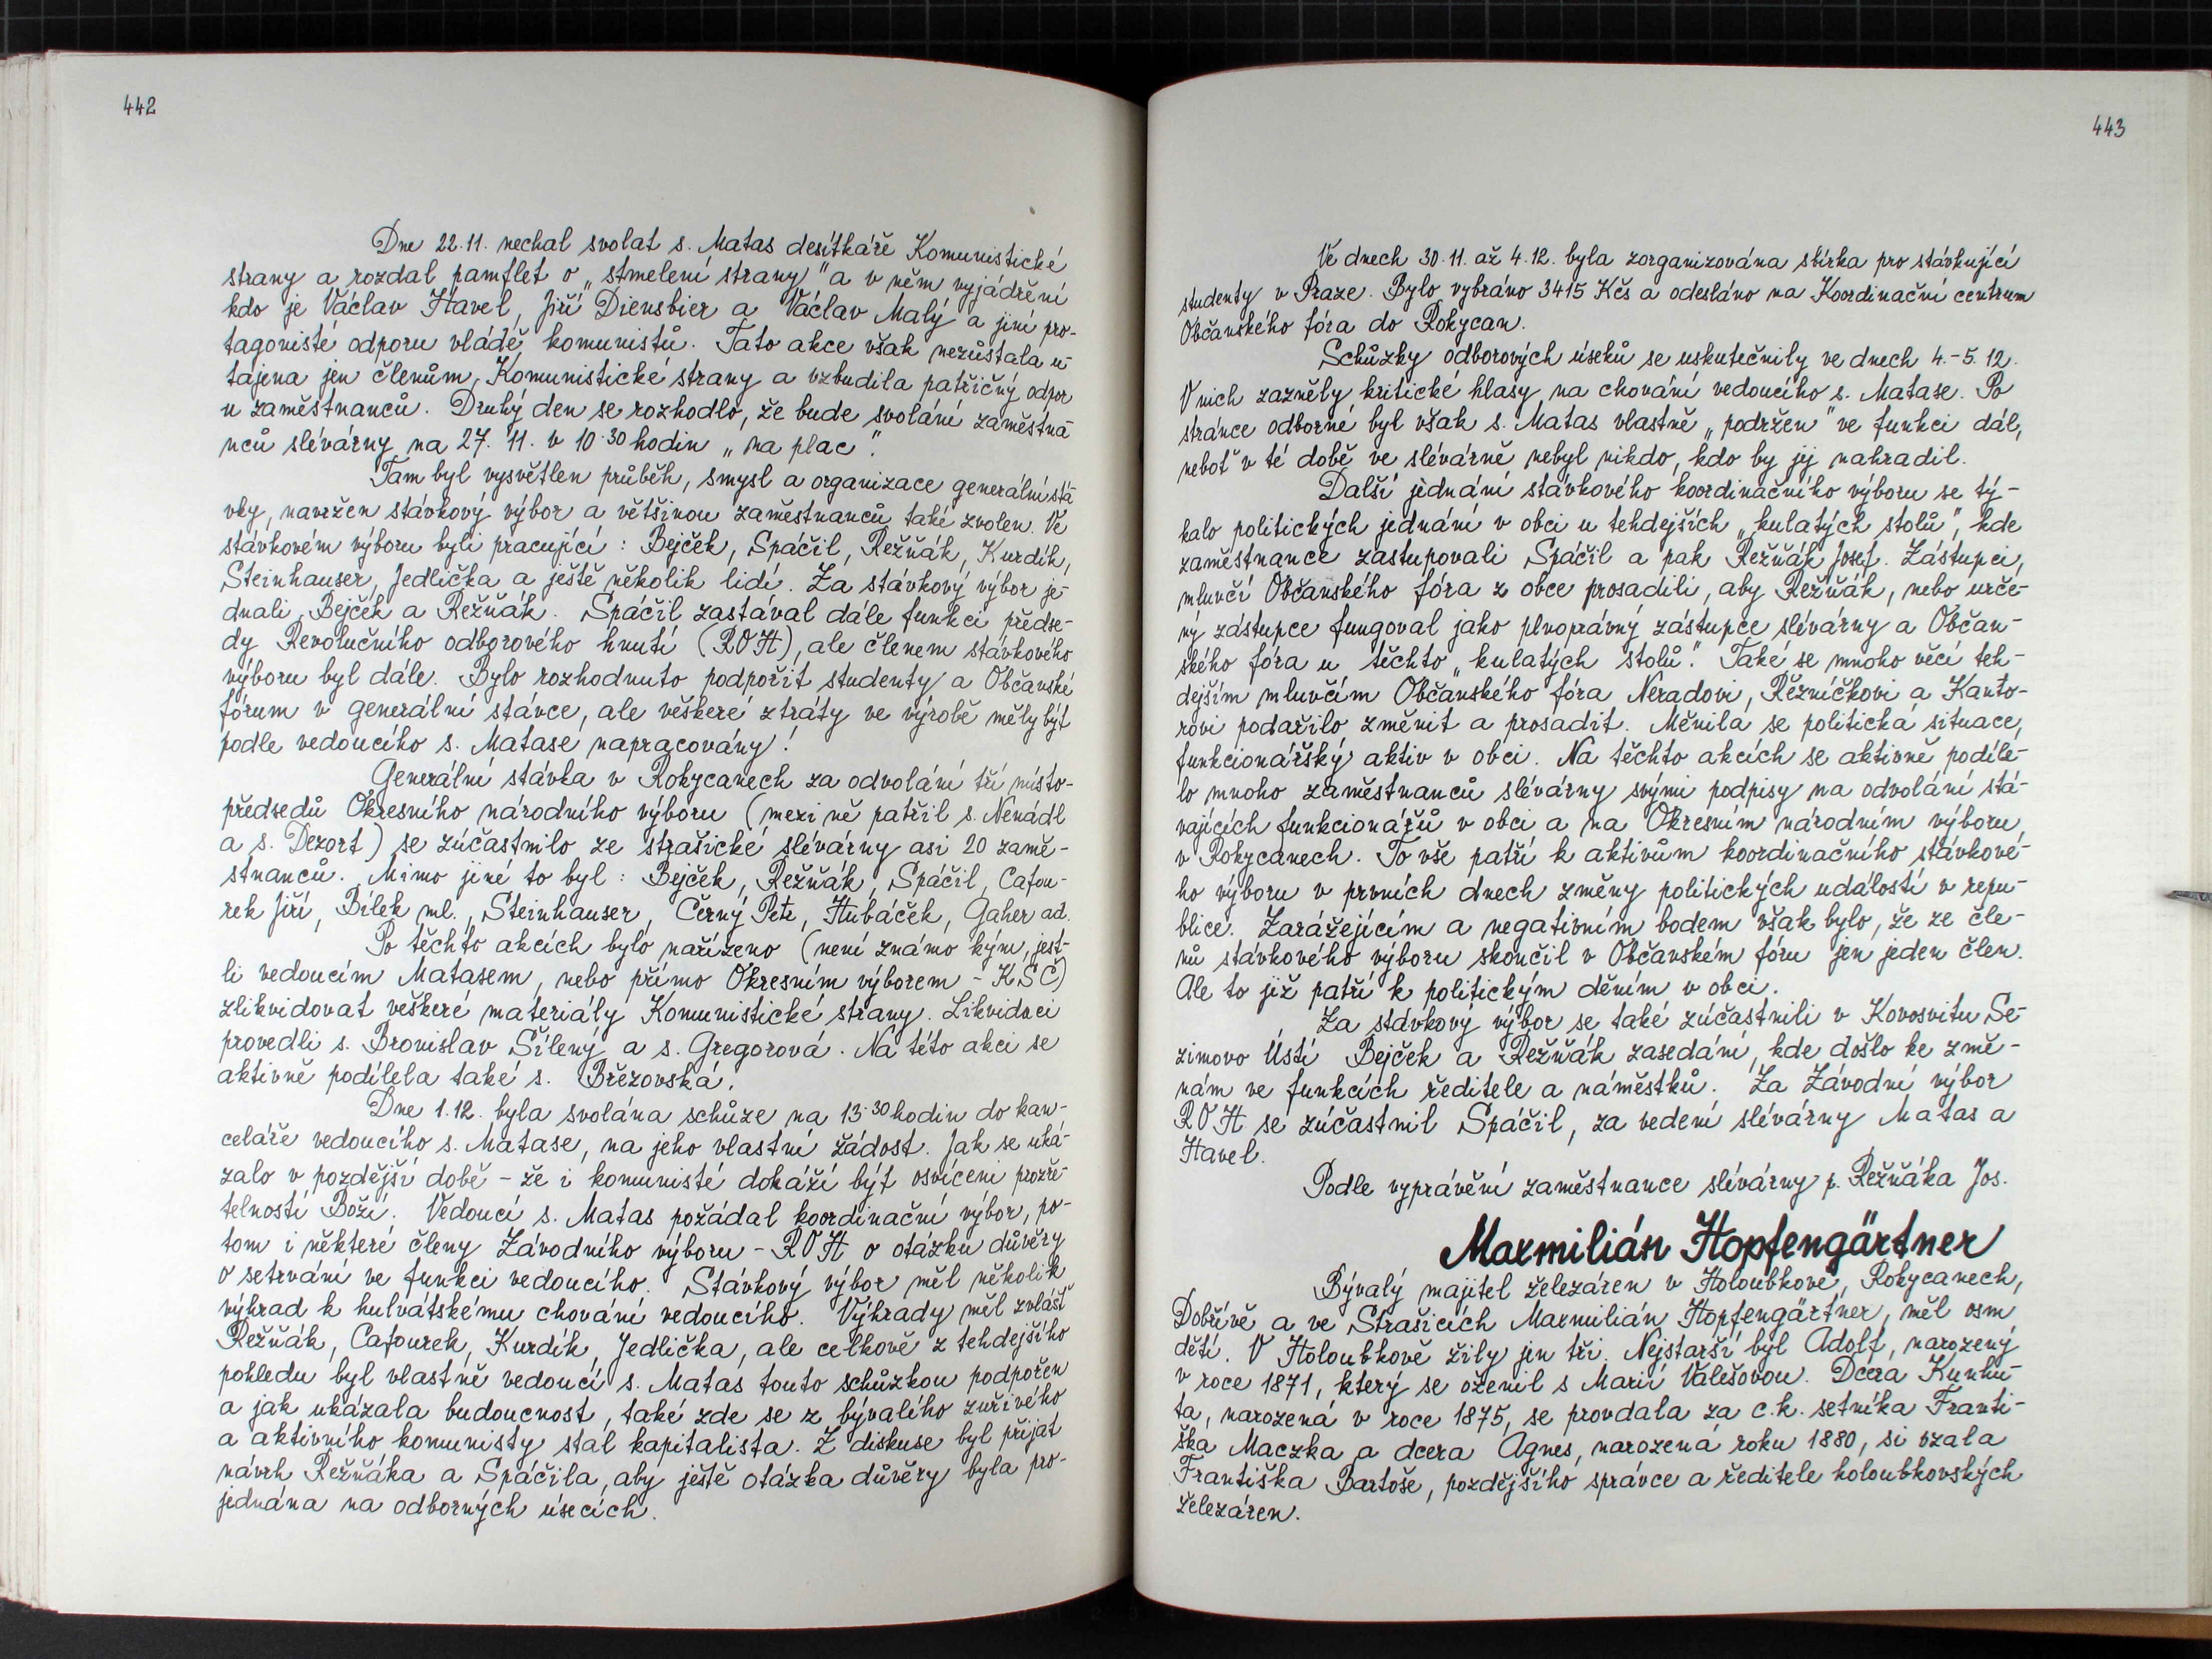 442
Dne 22.11. nechal svolat s. Matas desítkáře Komunistické
strany a rozdal pamflet o „stmelení strany" a v něm vyjádření
kdo je Václav Havel, Jiří Diensbier a Václav Malý a jiní pro-
tagonisté odporu vládě komunistů. Tato akce však nezůstala u-
tajena jen členům Komunistické strany a vzbudila patřičný odpor
u zaměstnanců. Druhý den se rozhodlo, že bude svolání zaměstna-
nců slévárny na 27. 11. v 10.30 hodin „na plac".
Tam byl vysvětlen průběh, smysl a organizace generální stá-
vky, navržen stávkový výbor a většinou zaměstnanců také zvolen. Ve
stávkovém výboru byli pracující: Bejček, Spáčil, Režňák, Kurdík,
Steinhauser, Jedlička a ještě několik lidí. Za stávkový výbor je-
dnali Bejček a Režňák. Spáčil zastával dále funkci předse-
dy Revolučního odborového hnutí (ROH), ale členem stávkového
výboru byl dále. Bylo rozhodnuto podpořit studenty a Občanské
fórum v generální stávce, ale veškeré ztráty ve výrobě měly být
podle vedoucího s. Matase napracovány!
Generální stávka v Rokycanech za odvolání tří místo-
předsedů Okresního národního výboru (mezi ně patřil s. Nenádl
a s. Dezort) se zúčastnilo ze strašické slévárny asi 20 zamě-
stnanců. Mimo jiné to byl: Bejček, Režňák, Spáčil, Cafou-
rek Jiří, Bílek ml., Steinhauser, Černý Petr, Hubáček, Gaher ad.
Po těchto akcích bylo nařízeno (není známo kým, jest-
li vedoucím Matasem, nebo přímo Okresním výborem - KSČ)
zlikvidovat veškeré materiály Komunistické strany. Likvidaci
provedli s. Bronislav Šílený a s. Gregorová. Na této akci se
aktivně podílela také s. Březovská.
Dne 1.12. byla svolána schůze na 13.30 hodin do kan-
celáře vedoucího s. Matase, na jeho vlastní žádost. Jak se uká-
zalo v pozdější době - že i komunisté dokáží být osvíceni prozře-
telností Boží. Vedoucí s. Matas požádal koordinační výbor, po-
tom i některé členy Závodního výboru - ROH o otázku důvěry
o setrvání ve funkci vedoucího. Stávkový výbor měl několik
výhrad k hulvátskému chování vedoucího. Výhrady měl zvlášť
Režňák, Cafourek, Kurdík, Jedlička, ale celkově z tehdejšího
pohledu byl vlastně vedoucí s. Matas touto schůzkou podpořen
a jak ukázala budoucnost, také zde se z bývalého zuřivého
a aktivního komunisty stal kapitalista. Z diskuse byl přijat
návrh Režňáka a Spáčila, aby ještě otázka důvěry byla pro-
jednána na odborných úsecích.
443
Ve dnech 30.11. až 4.12. byla zorganizována sbírka pro stávkující
studenty v Praze. Bylo vybráno 3415 Kčs a odesláno na Koordinační centrum
Občanského fóra do Rokycan.
Schůzky odborových úseků se uskutečnily ve dnech 4.-5. 12.
V nich zazněly kritické hlasy na chování vedoucího s. Matase. Po
stránce odborné byl však s. Matas vlastně „podržen" ve funkci dál,
neboť v té době ve slévárně nebyl nikdo, kdo by jej nahradil.
Další jednání stávkového koordinačního výboru se tý-
kalo politických jednání v obci u tehdejších „kulatých stolů", kde
zaměstnance zastupovali Spáčil a pak Režňák Josef. Zástupci,
mluvčí Občanského fóra z obce prosadili, aby Režňák, nebo urče-
ný zástupce fungoval jako plnoprávný zástupce slévárny a Občan-
ského fóra u těchto „kulatých stolů". Také se mnoho věcí teh-
dejším mluvčím Občanského fóra Neradovi, Řezníčkovi a Kanto-
rovi podařilo změnit a prosadit. Měnila se politická situace,
funkcionářský aktiv v obci. Na těchto akcích se aktivně podíle-
lo mnoho zaměstnanců slévárny svými podpisy na odvolání stá-
vajících funkcionářů v obci a na Okresním národním výboru
v Rokycanech. To vše patří k aktivům koordinačního stávkové-
ho výboru v prvních dnech změny politických událostí v repu-
blice. Zarážejícím a negativním bodem však bylo, že ze čle-
nů stávkového výboru skončil v Občanském fóru jen jeden člen.
Ale to již patří k politickým děním v obci.
Za stávkový výbor se také zúčastnili v Kovosvitu Se-
zimovo Ústí Bejček a Režňák zasedání, kde došlo ke změ-
nám ve funkcích ředitele a náměstků. Za Závodní výbor
ROH se zúčastnil Spáčil, za vedení slévárny Matas a
Havel.
Podle vyprávění zaměstnance slévárny p. Režňáka Jos.
Maxmilián Hopfengärtner
Bývalý majitel železáren v Holoubkově, Rokycanech,
Dobřívě a ve Strašicích Maxmilián Hopfengärtner, měl osm
dětí. V Holoubkově žily jen tři. Nejstarší byl Adolf, narozený
v roce 1871, který se oženil s Marií Valešovou. Dcera Kunhu-
ta, narozená v roce 1875, se provdala za c.k. setníka Franti-
ška Maczka a dcera Agnes, narozená roku 1880, si vzala
Františka Bartoše, pozdějšího správce a ředitele holoubkovských
železáren.